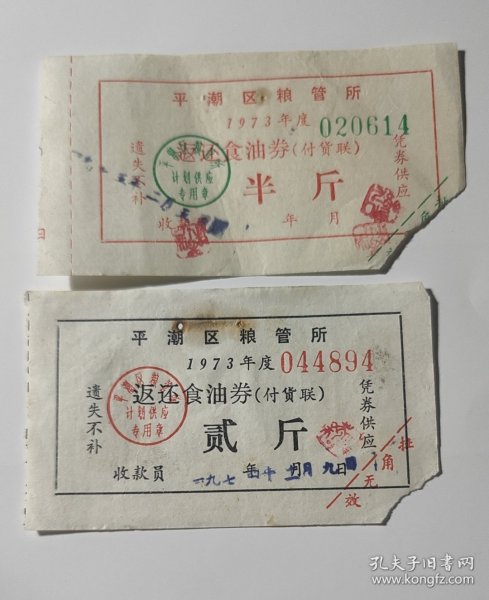 平潮区粮管所
1973年度 020614
返还食油券(付货联)
遗失不补
凭券供应
计划供应
专用章
半斤
收 年 月
平潮区粮管所
1973年度 044894
返还食油券(付货联)
遗失不补
凭券供应
计划供应
专用章
贰斤
收款员 一九七 年 月九日
挂
角
无
效
孔夫子旧书网
www.kongfz.com